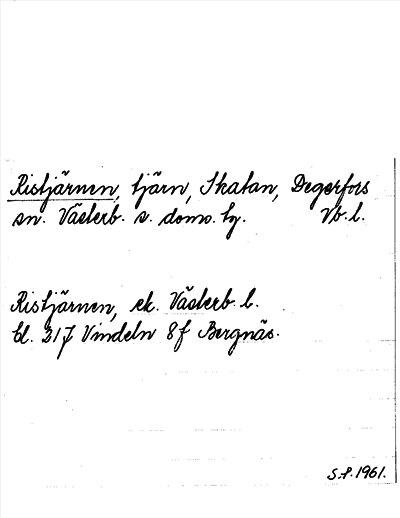 Ristjärnen, tjärn, Skatan, Degerfors
sn. Västerb. s. doms. hg. Vb. l.
Ristjärnen, ek. Västerb. l.
bl. 21J Vindeln 8f Bergnäs.
S.P. 1961.